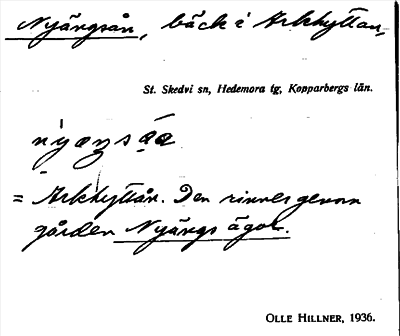 Nyängsån, bäck i Arkhyttan,
St. Skedvi sn, Hedemora tg, Kopparbergs län.
= Arkhyttån. Den rinner genom
gården Nyängs ägor.
OLLE HILLNER, 1936.